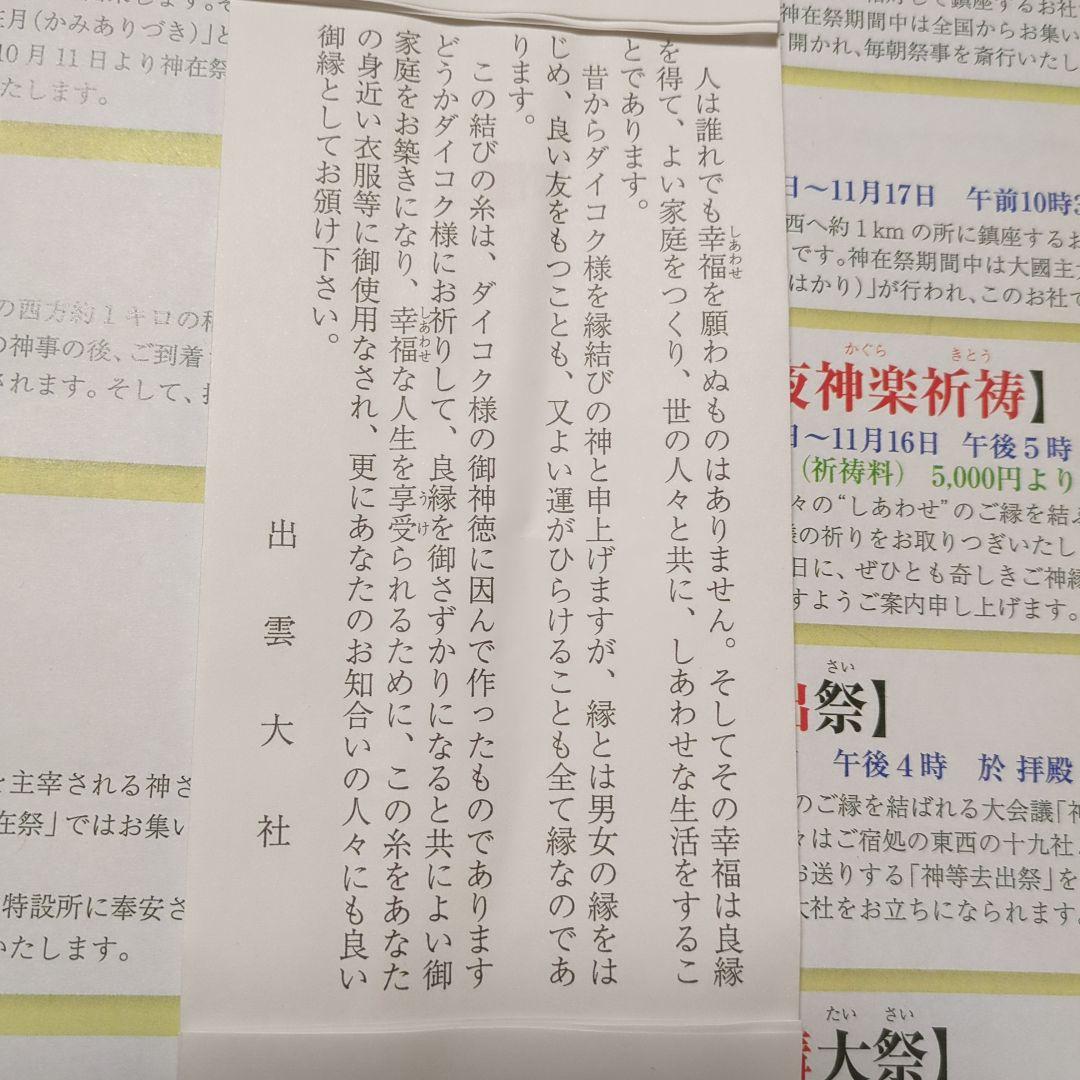 人は誰れでも幸福を願わぬものはありません。そしてその幸福は良縁
しあわせ
を得て、よい家庭をつくり、世の人々と共に、しあわせな生活をするこ
とであります。
昔からダイコク様を縁結びの神と申上げますが、縁とは男女の縁をは
じめ、良い友をもつことも、又よい運がひらけることも全て縁なのであ
ります。
この結びの糸は、ダイコク様の御神徳に因んで作ったものであります
どうかダイコク様にお祈りして、良縁を御さずかりになると共によい御
家庭をお築きになり、幸福な人生を享受られるために、この糸をあなた
しあわせ
うけ
の身近い衣服等に御使用なされ、更にあなたのお知合いの人々にも良い
御縁としてお頒け下さい。
出雲大社
鎮座するお社
神在祭期間中は全国からお集い
開かれ、毎朝祭事を斎行いたし
日〜11月17日 午前10時3
西へ約1kmの所に鎮座するお
です。神在祭期間中は大國主大
はかり)」が行われ、このお社で
かぐら きとう
夜神楽祈祷】
日〜11月16日 午後5時
(祈祷料) 5,000円より
々の“しあわせ”のご縁を結ぶ
様の祈りをお取りつぎいたし
日に、ぜひとも奇しきご神縁
すようご案内申し上げます。
さい
出祭】
午後4時 於 拝殿
のご縁を結ばれる大会議「神
々はご宿処の東西の十九社
お送りする「神等去出祭」を
大社をお立ちになられます。
たい さい
大祭】
在月(かみありづき)」と
10月11日より神在祭
たします。
の西方約1キロの稲
の神事の後、ご到着
されます。そして、
を主宰される神さ
在祭」ではお集い
特設所に奉安さ
いたします。